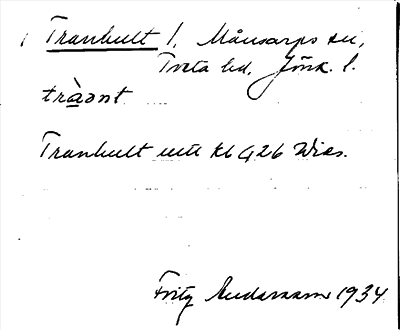 Tranhult l. Månsarps sn,
Tveta hd, Jönk. l.
tràənt
Tranhult utt kl 426 Wies.
Fritz Andersson 1934